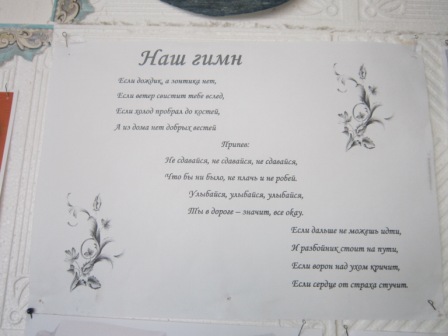 Наш гимн
Если дождик, а зонтика нет,
Если ветер свистит тебе вслед,
Если холод пробрал до костей,
А из дома нет добрых вестей
Припев:
Не сдавайся, не сдавайся, не сдавайся,
Что бы ни было, не плачь и не робей.
Улыбайся, улыбайся, улыбайся,
Ты в дороге – значит, все okay.
Если дальше не можешь идти,
И разбойник стоит на пути,
Если ворон над ухом кричит,
Если сердце от страха стучит.